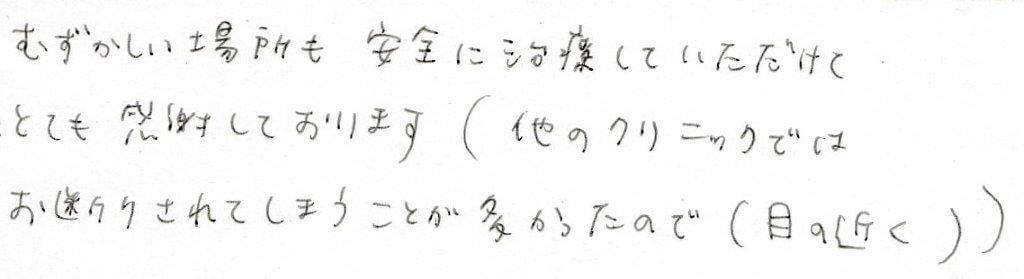 むずかしい場所も 安全に治療していただけて
とても感謝しております(他のクリニックでは
お断りされてしまうことが多かったので(目の近く))